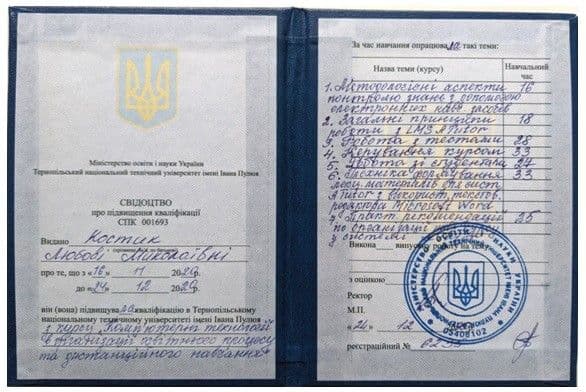 Міністерство освіти і науки України
Тернопільський національний технічний університет імені Івана Пулюя
СВІДОЦТВО
про підвищення кваліфікації
СПК 001693
Видано Костик
Любові Миколаївні
про те, що з «16» 11 2020р.
до «24» 12 2020р.
він (вона) підвищувала кваліфікацію в Тернопільському
національному технічному університеті імені Івана Пулюя
з курсу „Комп'ютерні технології
в організації освітнього процесу
та дистанційного навчання"
За час навчання опрацювала такі теми:
Назва теми (курсу) Навчальний час
1. Методологічні аспекти 16
контролю знань з допомогою
електронних засобів
2. Загальні принципи 18
роботи з LMS ATutor
3. Робота з тестами 28
4. Керування курсом 33
5. Робота зі студентами 24
6. Техніка формування 33
матеріалів
ATutor з використ.
редактора Microsoft Word
7. Практ. рекомендації 25
по організації
у системі
Виконав випускну роботу на тему
з оцінкою
Ректор
М.П.
«24» 12
реєстраційний №
05408102